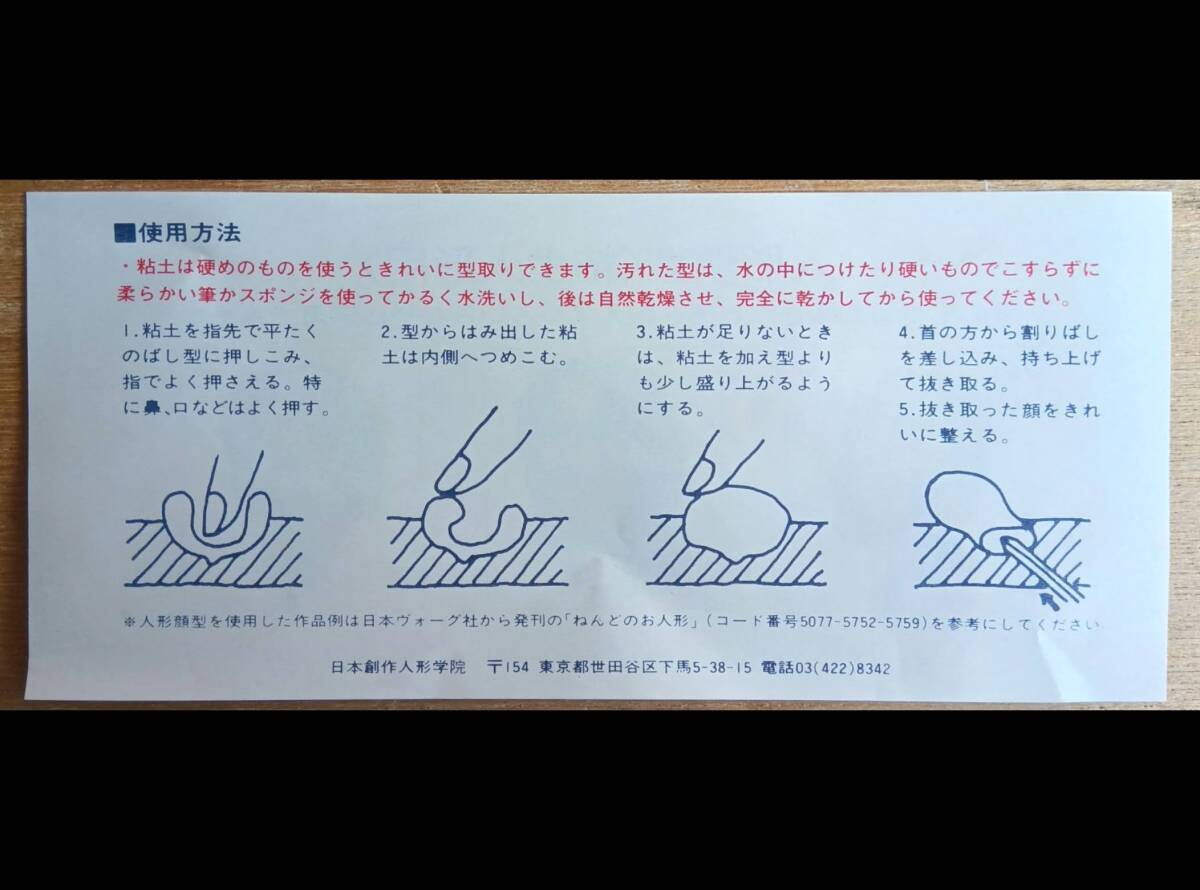 ■使用方法
・粘土は硬めのものを使うときれいに型取りできます。汚れた型は、水の中につけたり硬いものでこすらずに
柔らかい筆かスポンジを使ってかるく水洗いし、後は自然乾燥させ、完全に乾かしてから使ってください。
1.粘土を指先で平たく
のばし型に押しこみ、
指でよく押さえる。特
に鼻、口などはよく押す。
2.型からはみ出した粘
土は内側へつめこむ。
3.粘土が足りないとき
は、粘土を加え型より
も少し盛り上がるよう
にする。
4.首の方から割りばし
を差し込み、持ち上げ
て抜き取る。
5.抜き取った顔をきれ
いに整える。
※人形顔型を使用した作品例は日本ヴォーグ社から発刊の「ねんどのお人形」(コード番号5077-5752-5759)を参考にしてください
日本創作人形学院 〒154 東京都世田谷区下馬5-38-15 電話03(422)8342